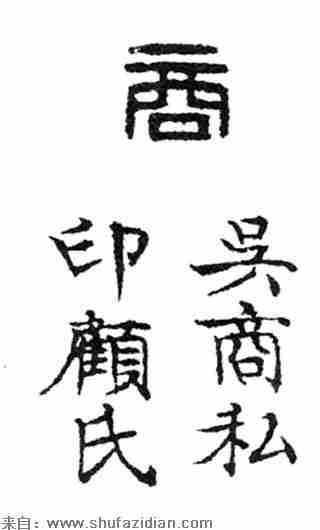 商
吳商私
印顧氏
来自：www.shufazidian.com